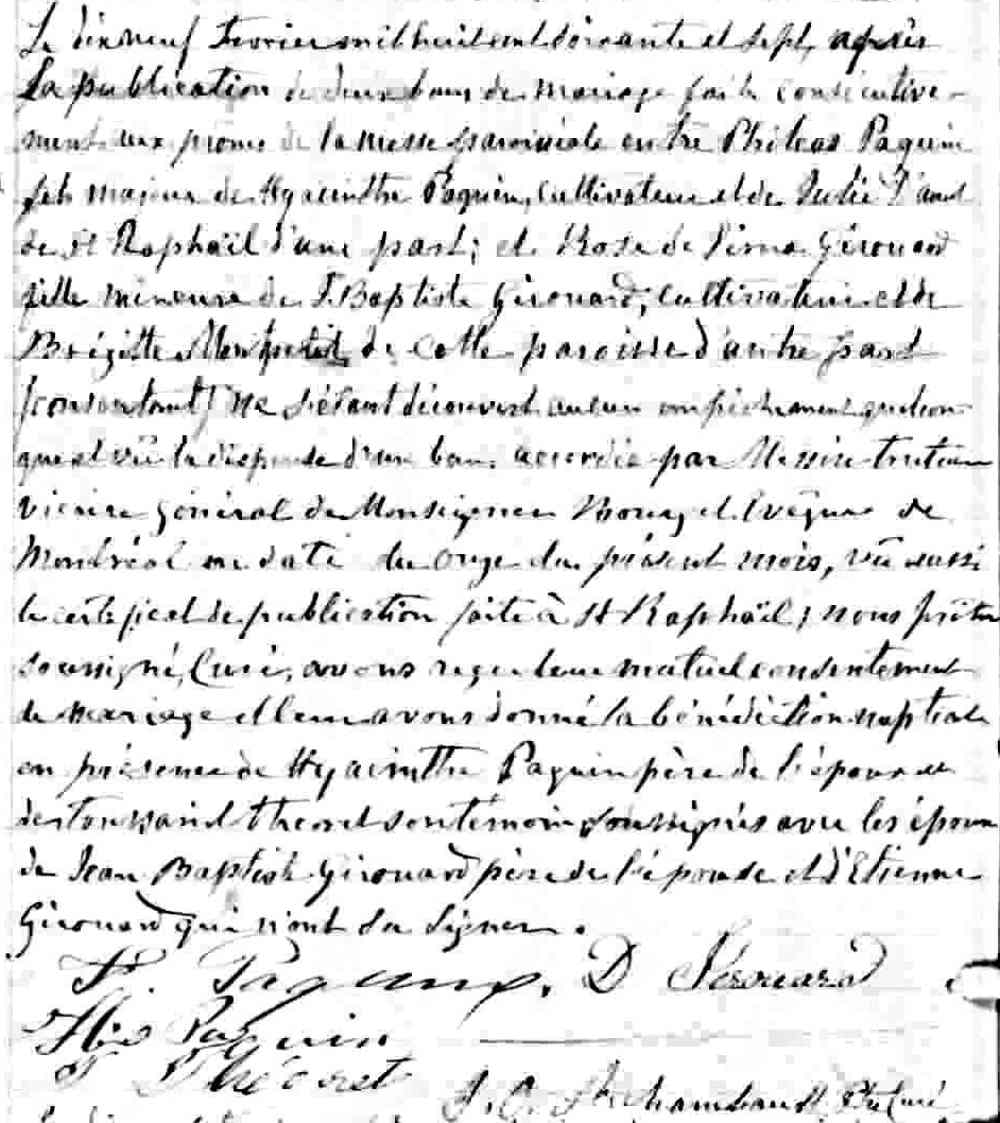 Le dix neuf Fevrier mil huit cent soixante et sept, après
La publication de deux bans de mariage faite consécutive-
ment aux prones de la messe paroissiale entre Philéas Paquin
fils majeur de Hyacinthe Paquin, cultivateur et de Julie
de St Raphaël d'une part; et Rose de Lima Girouard
fille mineure de J. Baptiste Girouard, cultivateur et de
Brigitte Monpetit de cette paroisse d'autre part
(consentant) ne s'étant découvert aucun empêchement quelcon-
que et vû la dispense d'un ban accordée par Messire Truteau
vicaire général de Monseigneur Bourget Evêque de
Montréal en date du onze du présent mois, vû aussi
le certificat de publication faite à St Raphaël; nous prêtre
soussigné, Curé, avons reçu leur mutuel consentement
de mariage et leur avons donné la bénédiction nuptiale
en présence de Hyacinthe Paquin père de l'époux et
de Toussaint Theoret son témoin soussignés avec les époux
de Jean Baptiste Girouard père de l'épouse et d'Etienne
Girouard qui n'ont su signer.
P. Paquin. D Girouard
Paquin
T Théoret
J. A. Archambault Ptre Curé